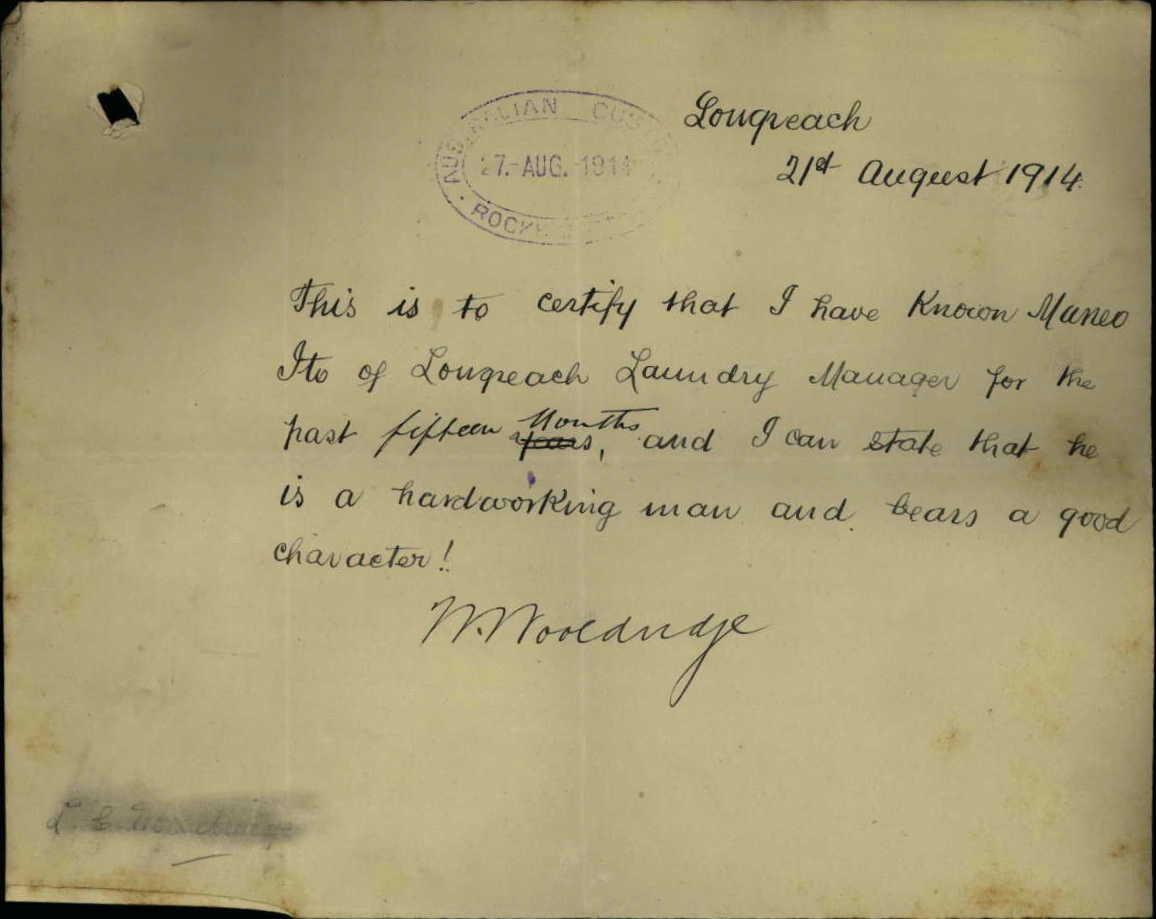 AUSTRALIAN CUS
27.-AUG.-1914
ROCKH
Longreach
21st August 1914.
This is to certify that I have Known Maneo
Ito of Longreach Laundry Manager for the
past fifteen Months ~~years~~, and I can state that he
is a hardworking man and bears a good
character!
W. Wooldridge